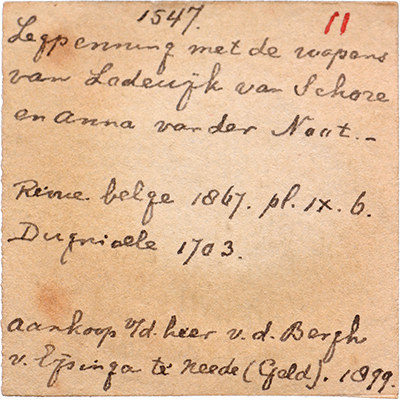 1547. 11
Legpenning met de wapens
van Lodewijk van Schore
en Anna van der Noot. -
Revue belge 1867. pl. IX. 6.
Dugniolle 1703.
aankoop v/d. heer v. d. Bergh
v. Eijsinga te Neede (Geld). 1899.